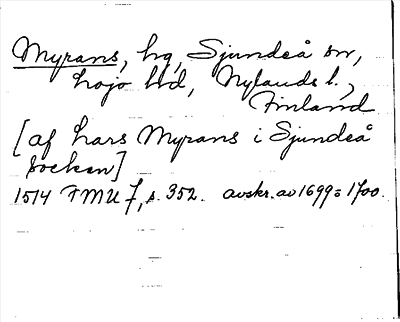 Myrans, hg, Sjundeå sn,
Lojo hd, Nylands l.,
Finland
[af Lars Myrans i Sjundeå
socken]
1514 FMU 7, s. 352. avskr. av 1699-1700.